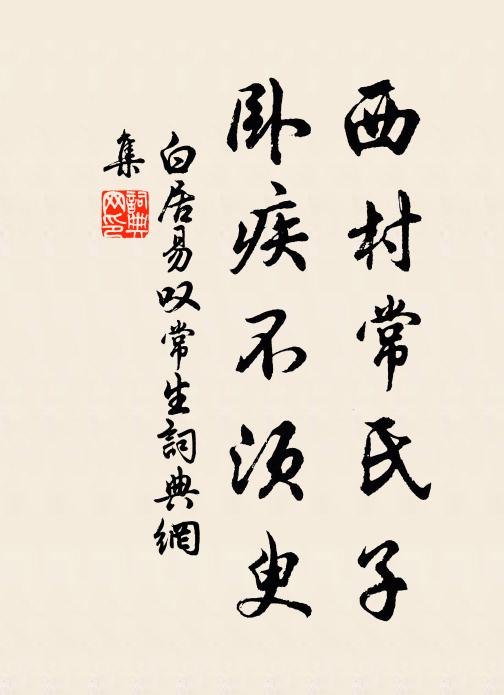 西村常氏子
卧疾不须臾
白居易叹常生詞典網
集
詞典网印